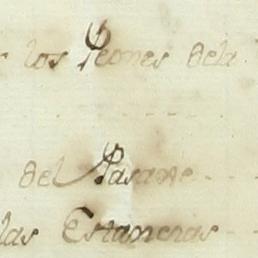 los Peones dela
del Pasane
las Estancias